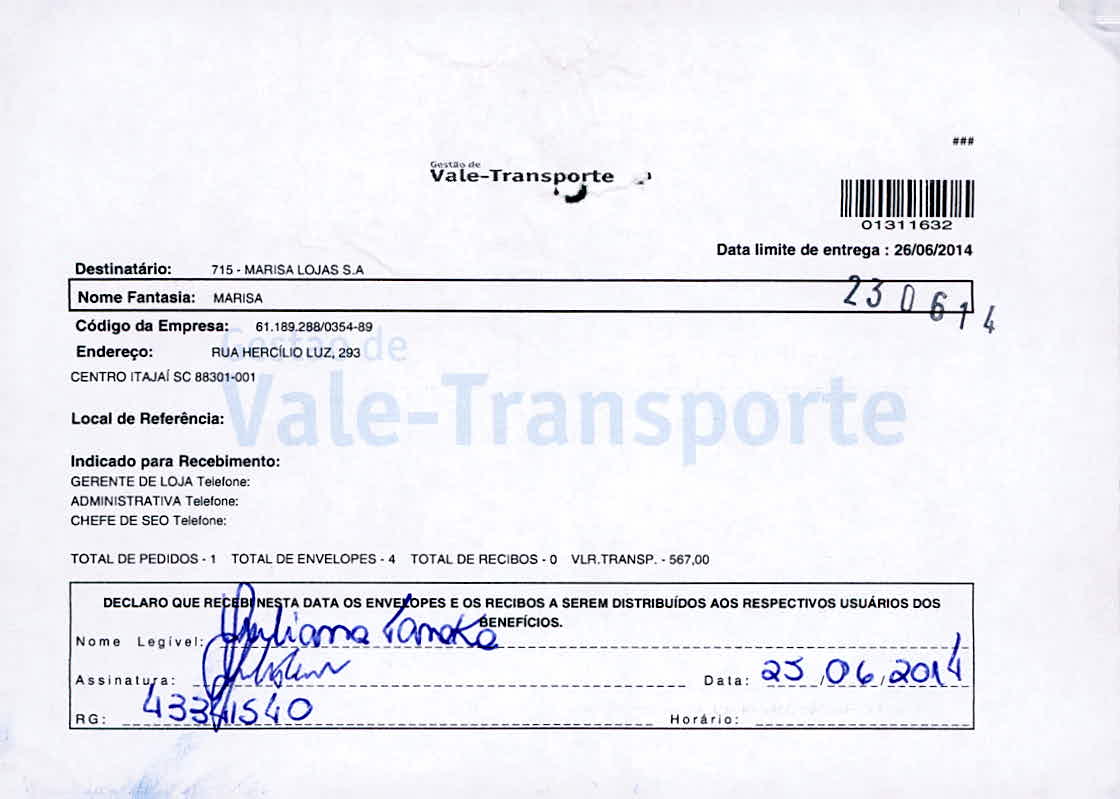 ###
Gestão de
Vale-Transporte
01311632
Data limite de entrega : 26/06/2014
Destinatário: 715 - MARISA LOJAS S.A
Nome Fantasia: MARISA
230614
Código da Empresa: 61.189.288/0354-89
Endereço: RUA HERCÍLIO LUZ, 293
CENTRO ITAJAÍ SC 88301-001
Gestão de
Vale-Transporte
Local de Referência:
Indicado para Recebimento:
GERENTE DE LOJA Telefone:
ADMINISTRATIVA Telefone:
CHEFE DE SEO Telefone:
TOTAL DE PEDIDOS - 1 TOTAL DE ENVELOPES - 4 TOTAL DE RECIBOS - 0 VLR.TRANSP. - 567,00
DECLARO QUE RECEBI NESTA DATA OS ENVELOPES E OS RECIBOS A SEREM DISTRIBUÍDOS AOS RESPECTIVOS USUÁRIOS DOS
BENEFÍCIOS.
Nome Legível: Juliana Tanaka
Assinatura: Data: 25/06/2014
RG: 43341540 Horário: